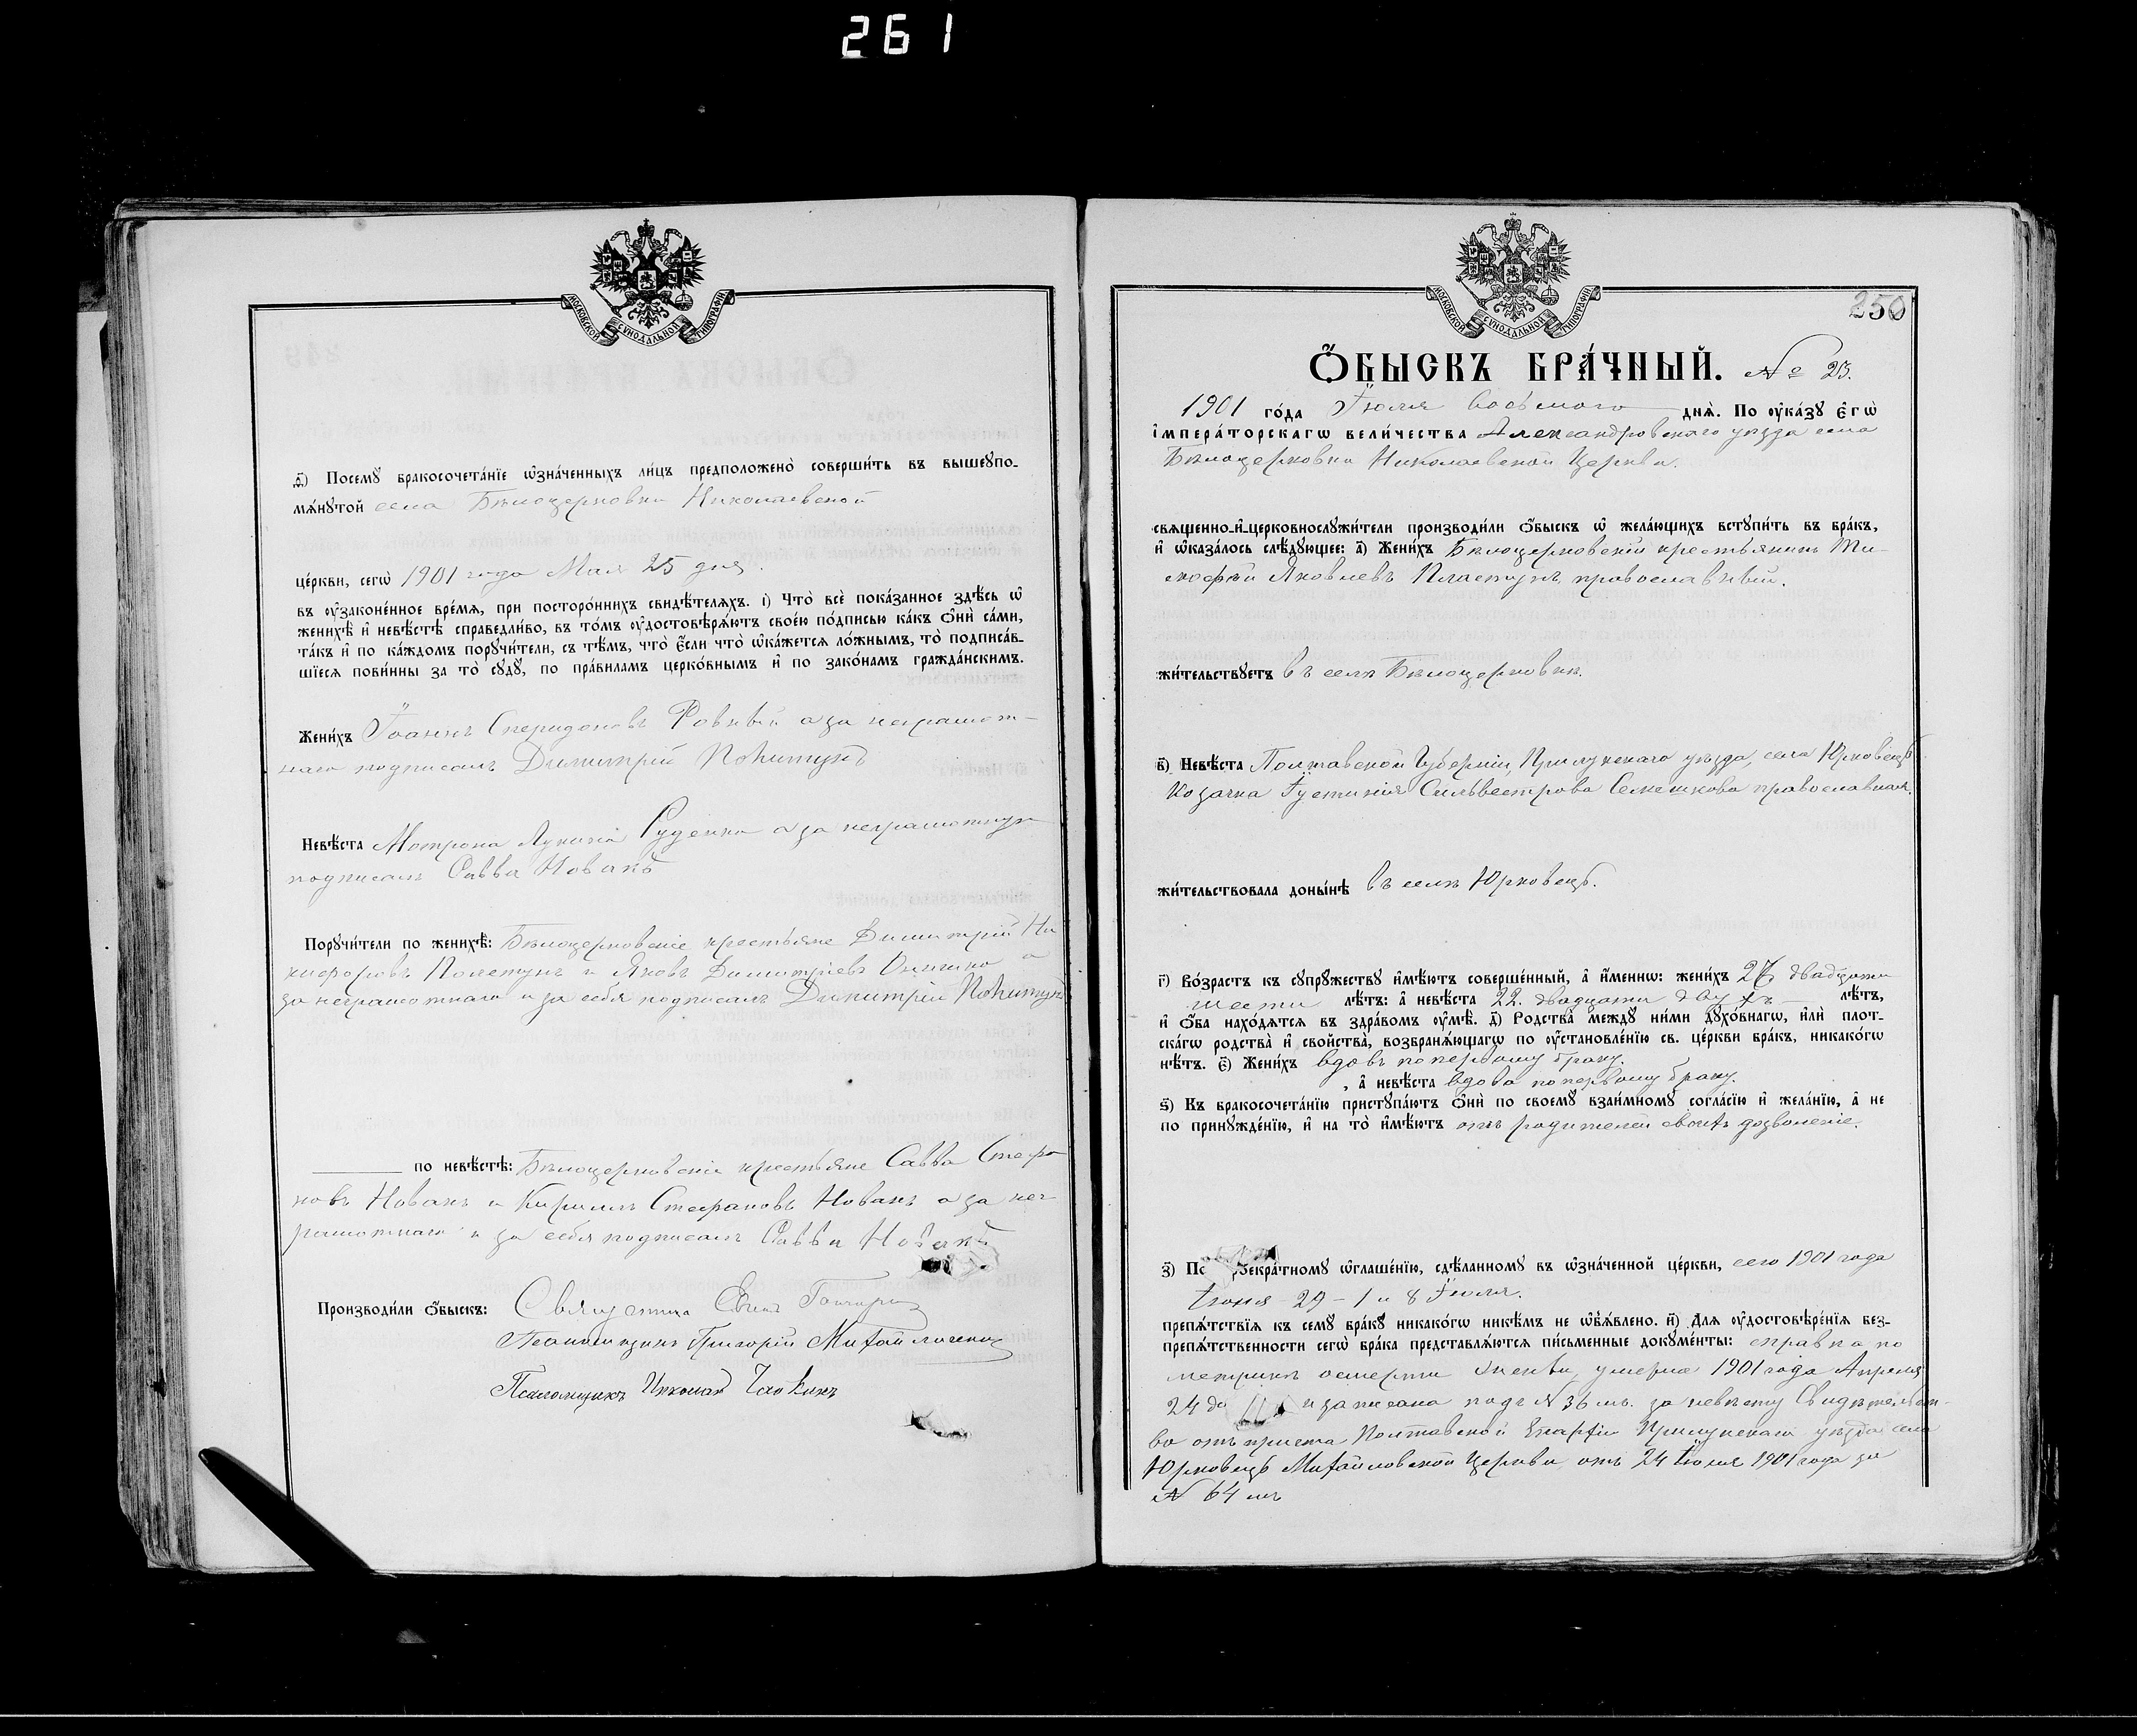 261
МОСКОВСКОЙ СѴНОДАЛЬНОЙ ТИПОГРАФІИ
ѳ҃) Посемꙋ̀ бракосочета́нїе ѡ҆зна́ченныхъ ли́цъ предположено̀ соверши́ть въ вышеꙋпо-
мѧ́нꙋтой села Бѣлоцерковки Николаевской
це́ркви, сегѡ̀ 1901 года Мая 25 дня.
въ ᲂу҆зако́ненное вре́мѧ, при посторо́ннихъ свидѣ́телѧхъ. і҃) Что̀ всѐ пока́занное здѣ́сь ѡ҆
женихѣ̀ и҆ невѣ́стѣ справедли́во, въ то́мъ ᲂу҆достовѣрѧ́ютъ свое́ю по́дписью ка́къ ѻ҆нѝ са́ми,
та́къ и҆ по ка́ждомъ порꙋчи́тели, съ тѣ́мъ, что̀ є҆́сли что̀ ѡ҆ка́жетсѧ ло́жнымъ, то̀ подписа́в-
шїесѧ пови́нны за то̀ сꙋдꙋ̀, по пра́виламъ церко́внымъ и҆ по зако́намъ гражда́нскимъ.
Жени́хъ Іоаннъ Спиридоновъ Ровный а за неграмот-
наго подписалъ Димитрій
Невѣ́ста Матрона Руденко а за неграмотную
подписалъ Савва Новакъ
Порꙋчи́тели по женихѣ̀: Бѣлоцерковскіе крестьяне Димитрій Ни
кифоровъ и Яковъ Димитріевъ а
за неграмотнаго и за себя подписалъ Димитрій
по невѣ́стѣ: Бѣлоцерковскіе крестьяне Савва Стефа
новъ Новакъ и Кириллъ Стефановъ Новакъ а за нег-
рамотнаго и за себя подписалъ Савва Новакъ
Производи́ли ѻ҆́быскъ: Священникъ
Псаломщикъ Григорій Михайличенко
Псаломщикъ Николай
МОСКОВСКОЙ СѴНОДАЛЬНОЙ ТИПОГРАФІИ
250
Ѻ҆́БЫСКЪ БРА́ЧНЫЙ. № 23.
1901 го́да Іюля восьмого днѧ̀. По ᲂу҆ка́зꙋ є҆гѡ̀
і҆мпера́торскагѡ вели́чества Александровскаго уѣзда села
Бѣлоцерковки Николаевской Церкви.
свѧщенно-и҆-церковнослꙋжи́тели производи́ли ѻ҆́быскъ ѡ҆ жела́ющихъ встꙋпи́ть въ бра́къ,
и҆ ѡ҆каза́лось слѣ́дꙋющее: а҃) Жени́хъ Бѣлоцерковскій крестьянинъ Ти-
мофѣй Яковлевъ Пластунъ, православный.
жи́тельствꙋетъ въ селѣ Бѣлоцерковкѣ.
в҃) Невѣ́ста Полтавской Губерніи, Прилукскаго уѣзда, села Юрковецъ
Козачка Іустинія Сильвестрова Семешкова православная.
жи́тельствовала доны́нѣ въ селѣ Юрковецъ.
г҃) Во́зрастъ къ сꙋпрꙋ́жествꙋ и҆мѣ́ютъ соверше́нный, а҆ и҆́менно: жени́хъ 26 двадцати
шести лѣ́тъ: а҆ невѣ́ста 22. двадцати двухъ лѣ́тъ,
и҆ ѻ҆́ба нахо́дѧтсѧ въ здра́вомъ ᲂу҆мѣ̀. д҃) Родства̀ междꙋ̀ ни́ми дꙋхо́внагѡ, и҆лѝ плот-
ска́гѡ родства̀ и҆ сво́йства̀, возбранѧ́ющагѡ по ᲂу҆становле́нїю св. це́ркви бра́къ, никако́гѡ
нѣ́тъ. є҃) Жени́хъ вдовъ по первому браку.
, а҆ невѣ́ста вдова по первому браку.
ѕ҃) Къ бракосочета́нїю пристꙋпа́ютъ ѻ҆нѝ по своемꙋ̀ взаи́мномꙋ согла́сїю и҆ жела́нїю, а҆ не
по принꙋжде́нїю, и҆ на то̀ и҆мѣ́ютъ отъ родителей своихъ дозволеніе.
з҃) По кра́тномꙋ ѡ҆глаше́нїю, сдѣ́ланномꙋ въ ѡ҆зна́ченной це́ркви, сего 1901 года
Іюня 29 – 1 и 8 Іюля.
препѧ́тствїѧ къ семꙋ̀ бра́кꙋ никако́гѡ никѣ́мъ не ѡ҆б̾ѧ́влено. и҃) Для ᲂу҆достовѣре́нїѧ без-
препѧ́тственности сегѡ̀ бра́ка представлѧ́ютсѧ пи́сьменные докꙋме́нты: справка по
метрикѣ о смерти жены, умерла 1901 года Апрѣля
24 дня и записана подъ № 36 мъ. за невѣсту Свидѣтельст-
во отъ причта Полтавской Епархіи Прилукскаго уѣзда села
Юрковецъ Михайловской Церкви отъ 24 Іюня 1901 года за
№ 64 мъ